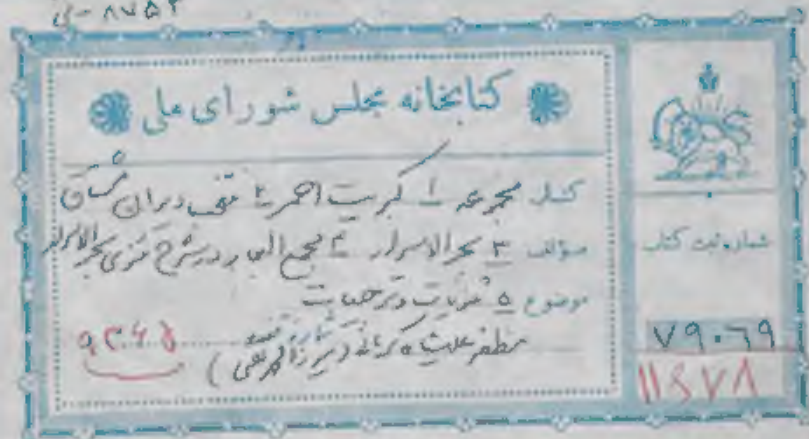 ۸۷۵۲ - ی
کتابخانه مجلس شورای ملی
کتاب مجموعه ۱ کبریت احمر ۲ منتخب دیوان مشتاق
مؤلف ۳ بحر الاسرار ۴ مجمع البحار در شرح مثنوی بحر الاسرار
موضوع ۵ غزلیات و ترجیعات
مظفر علیشاه کرمانی (میرزا محمد تقی)
۹۳۶۵
شماره ثبت کتاب
۷۹۰۶۹
۱۱۶۷۸